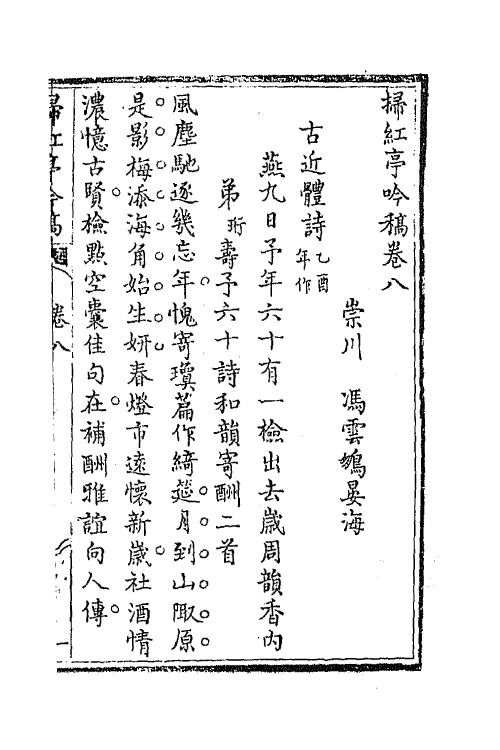 掃紅亭吟稿卷八
崇川 馮雲鵷晏海
古近體詩乙酉年作
燕九日予年六十有一檢出去歲周韻香內
弟珩壽予六十詩和韻寄酬二首
風塵馳逐幾忘年愧寄瓊篇作綺筵月到山陬原
是影梅添海角始生妍春燈市遠懷新歲社酒情
濃憶古賢檢點空囊佳句在補酬雅誼向人傳
掃紅亭吟稿 卷八 一